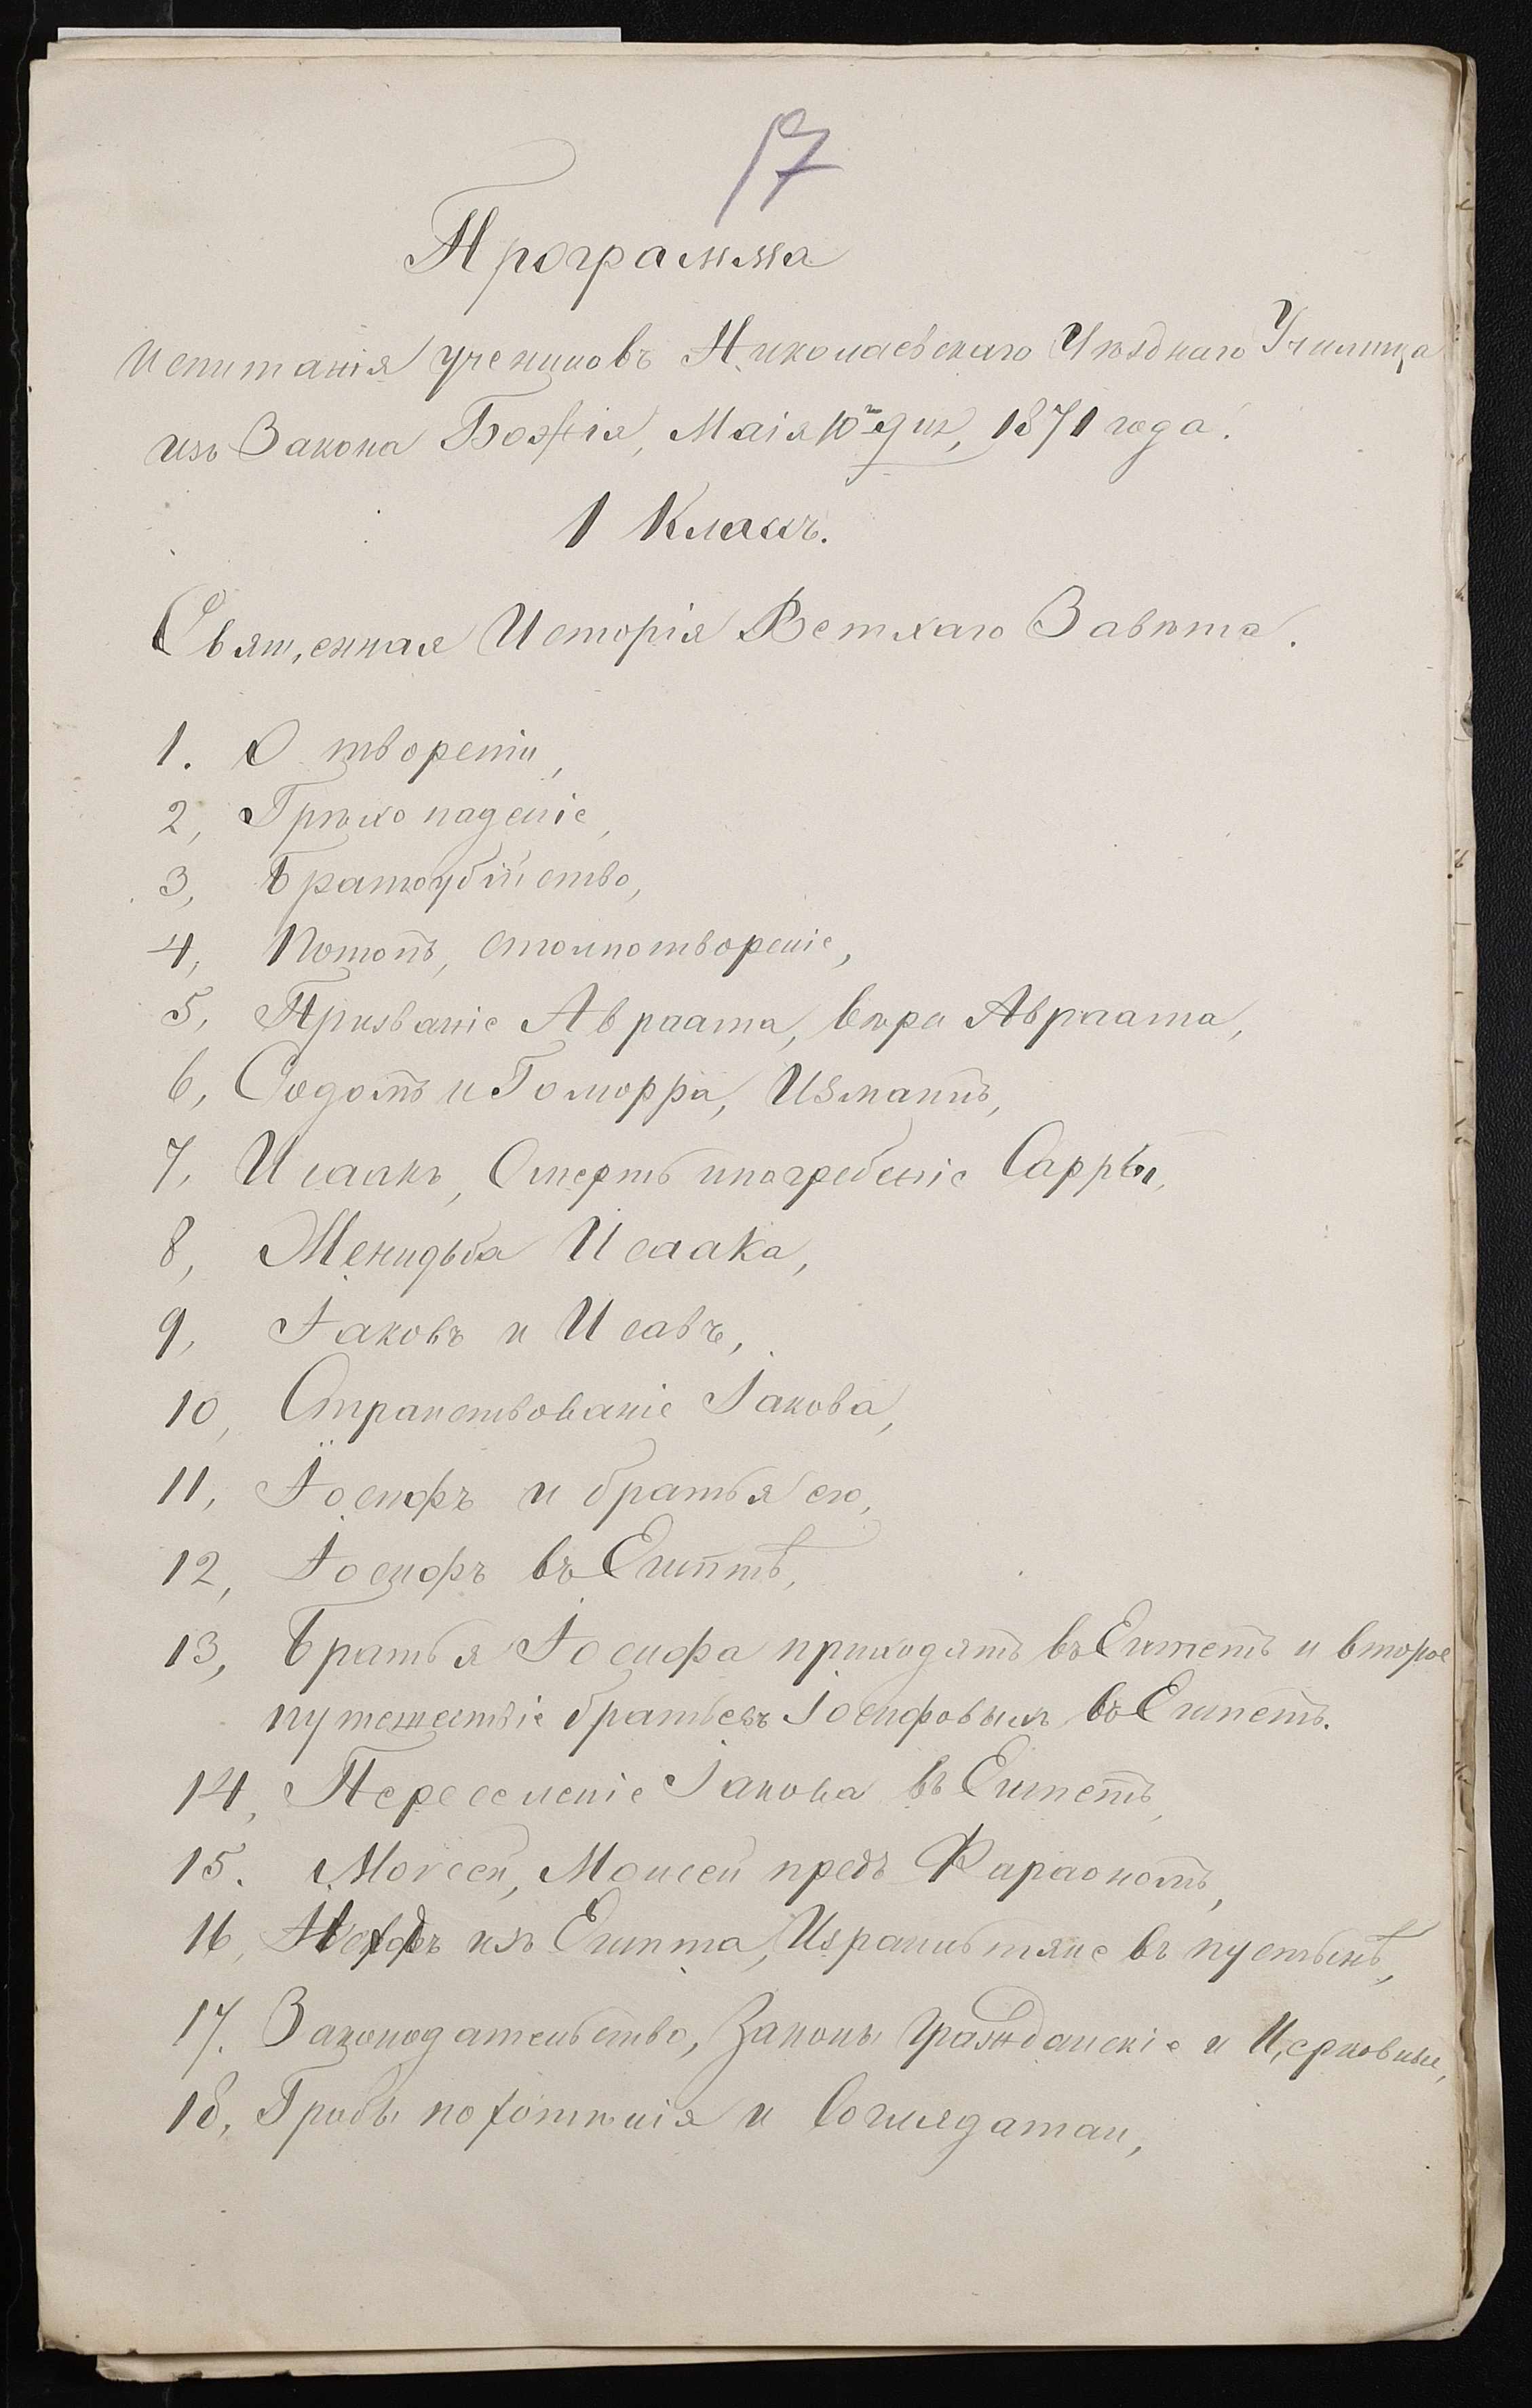 17
Программа
Испытанія учениковъ Николаевскаго Уѣзднаго Училища
изъ Закона Божія, Маія 10го дня, 1871 года.
1 Классъ.
Священная Исторія Ветхаго Завѣта.
1. О твореніи,
2, Грѣхо паденіе,
3, Братоубійство,
4, Потопъ, столпотвореніе,
5, Призваніе Авраама, вѣра Авраама,
6, Содомъ и Гоморра, Измаилъ,
7, Исаакъ, Смерть и погребеніе Сарры,
8, Женидьба Исаака,
9, Іаковъ и Исавъ,
10, Странствованіе Іакова,
11, Іосифъ и братья его,
12, Іосифъ въ Египтѣ,
13, Братья Іосифа приходятъ въ Египетъ и второе
путешествіе братьевъ Іосифовыхъ въ Египетъ.
14, Переселеніе Іакова въ Египетъ,
15. Моисей, Моисей предъ Фараономъ,
16, изъ Египта, Израильтяне въ пустынѣ,
17. Законодательство, Законы Гражданскіе и Церковные,
18, Гробы похотѣнія и Соглядатаи,